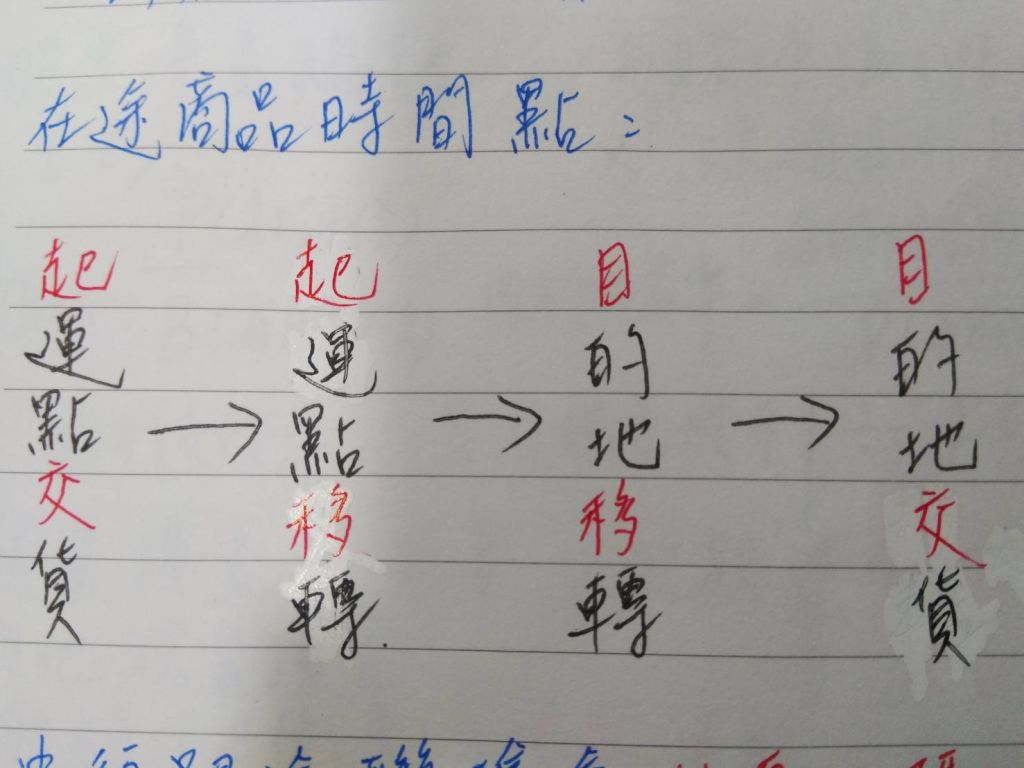 在途商品時間點：
起運點交貨 → 起運點移轉 → 目的地移轉 → 目的地交貨